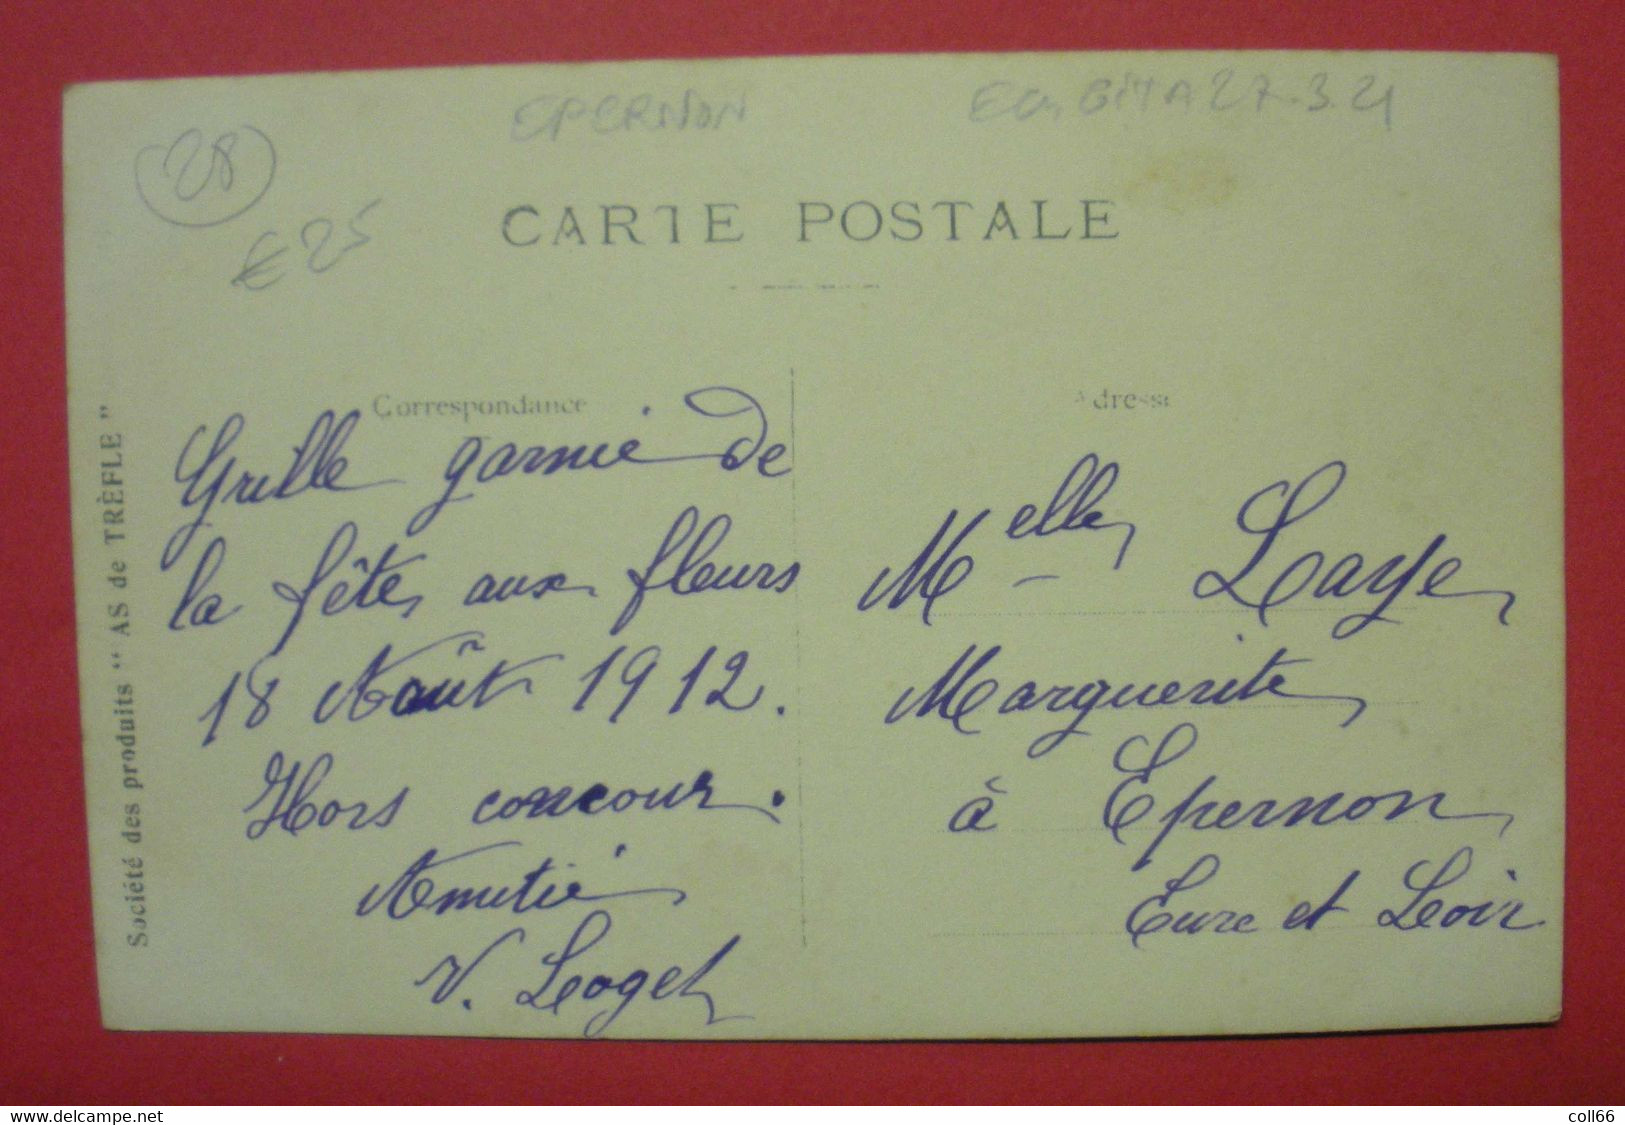 EPERNON
27.3.21
28
€25
CARTE POSTALE
Correspondance
Adresse
Société des produits "AS de TRÈFLE"
Grille garnie de
la fête aux fleurs
18 Août 1912.
Hors concour.
Amitié
V. Loget
Melle Laye
Marguerite
à Epernon
Eure et Loir
www.delcampe.net
coll66